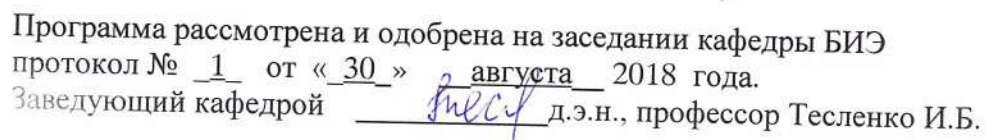 Программа рассмотрена и одобрена на заседании кафедры БИЭ
протокол № _1_ от «_30_» __августа__ 2018 года.
Заведующий кафедрой ______________д.э.н., профессор Тесленко И.Б.